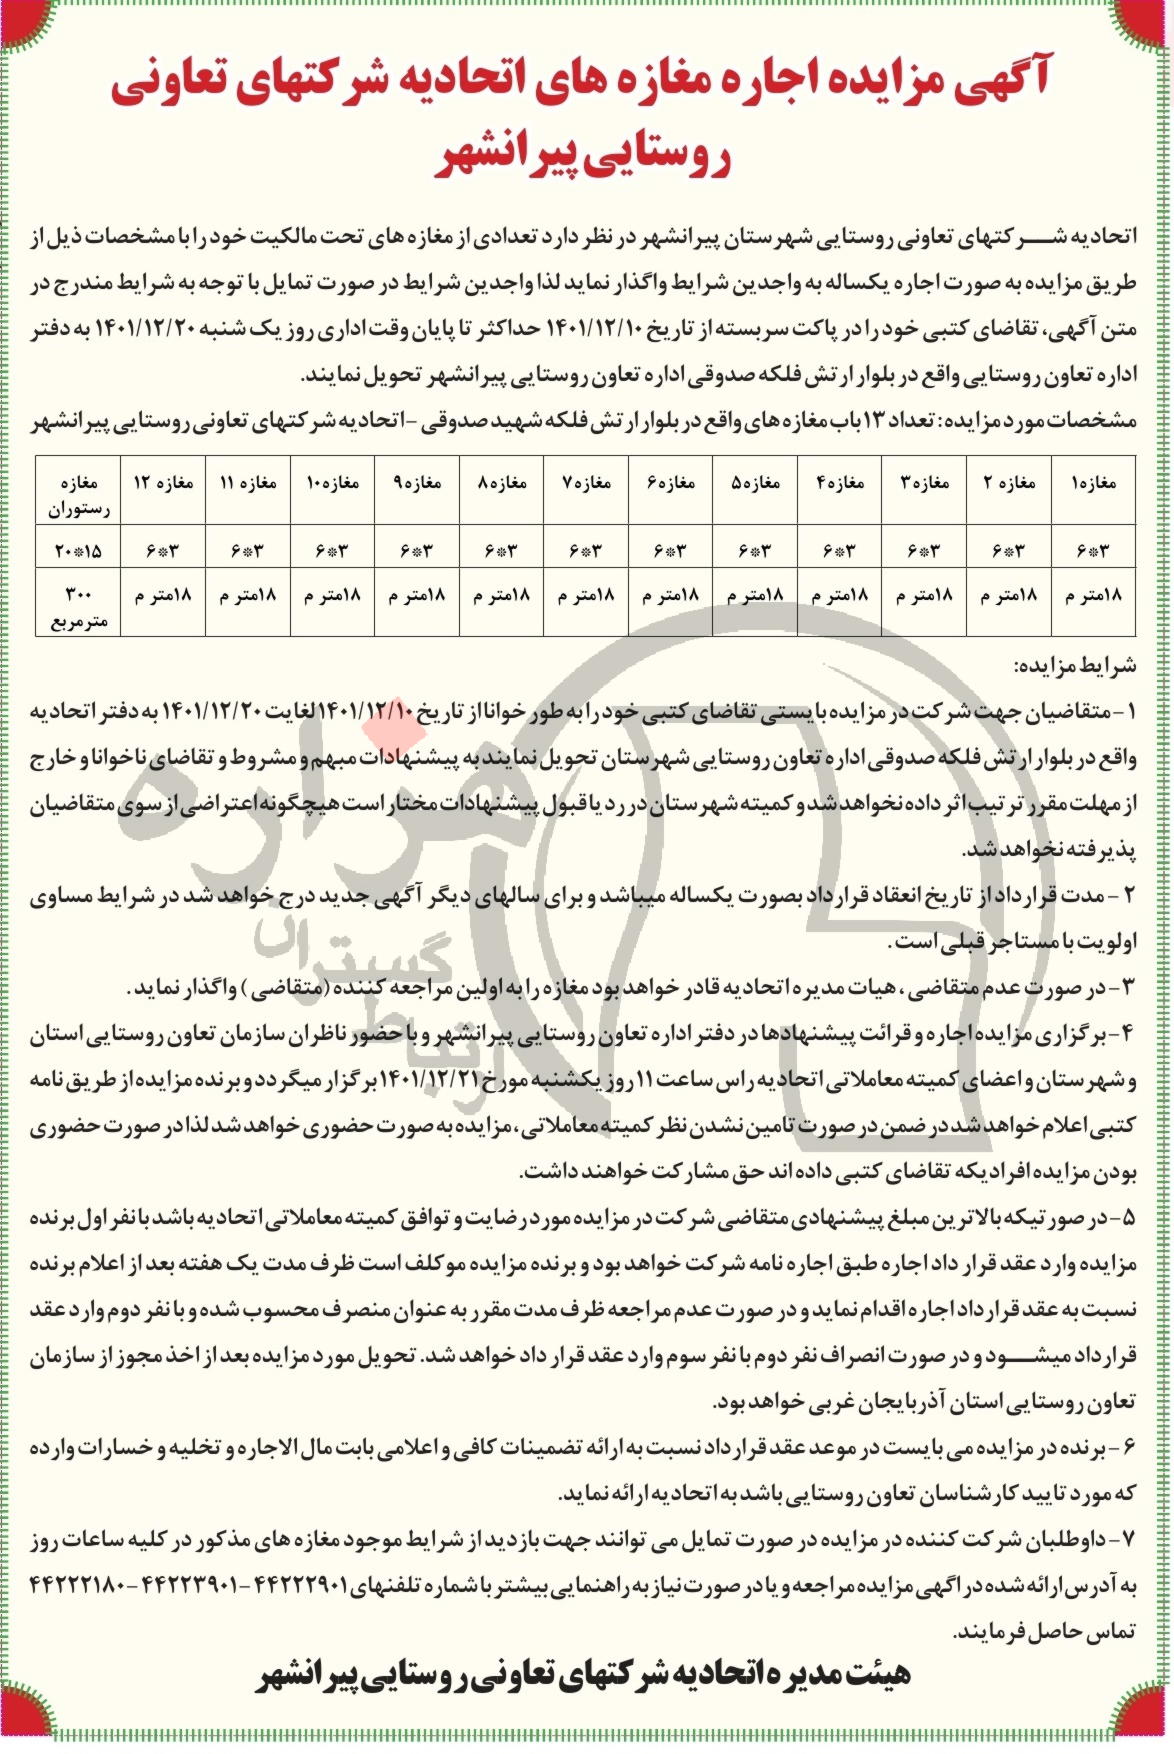 آگهی مزایده اجاره مغازه های اتحادیه شرکتهای تعاونی
روستایی پیرانشهر
اتحادیه شرکتهای تعاونی روستایی شهرستان پیرانشهر در نظر دارد تعدادی از مغازه های تحت مالکیت خود را با مشخصات ذیل از
طریق مزایده به صورت اجاره یکساله به واجدین شرایط واگذار نماید لذا واجدین شرایط در صورت تمایل با توجه به شرایط مندرج در
متن آگهی، تقاضای کتبی خود را در پاکت سربسته از تاریخ ۱۴۰۱/۱۲/۱۰ حداکثر تا پایان وقت اداری روز یک شنبه ۱۴۰۱/۱۲/۲۰ به دفتر
اداره تعاون روستایی واقع در بلوار ارتش فلکه صدوقی اداره تعاون روستایی پیرانشهر تحویل نمایند.
مشخصات مورد مزایده: تعداد ۱۳ باب مغازه های واقع در بلوار ارتش فلکه شهید صدوقی -اتحادیه شرکتهای تعاونی روستایی پیرانشهر
مغازه۱ مغازه ۲ مغازه۳ مغازه۴ مغازه۵ مغازه۶ مغازه۷ مغازه۸ مغازه۹ مغازه۱۰ مغازه ۱۱ مغازه ۱۲ مغازه
رستوران
۳*۶ ۳*۶ ۳*۶ ۳*۶ ۳*۶ ۳*۶ ۳*۶ ۳*۶ ۳*۶ ۳*۶ ۳*۶ ۳*۶ ۱۵*۲۰
۱۸متر م ۱۸متر م ۱۸متر م ۱۸متر م ۱۸متر م ۱۸متر م ۱۸متر م ۱۸متر م ۱۸متر م ۱۸متر م ۱۸متر م ۱۸متر م ۳۰۰
مترمربع
شرایط مزایده:
۱-متقاضیان جهت شرکت در مزایده بایستی تقاضای کتبی خود را به طور خوانا از تاریخ ۱۴۰۱/۱۲/۱۰ لغایت ۱۴۰۱/۱۲/۲۰ به دفتر اتحادیه
واقع در بلوار ارتش فلکه صدوقی اداره تعاون روستایی شهرستان تحویل نمایند به پیشنهادات مبهم و مشروط و تقاضای ناخوانا و خارج
از مهلت مقرر ترتیب اثر داده نخواهد شد و کمیته شهرستان در رد یا قبول پیشنهادات مختار است هیچگونه اعتراضی از سوی متقاضیان
پذیرفته نخواهد شد.
۲ - مدت قرارداد از تاریخ انعقاد قرارداد بصورت یکساله میباشد و برای سالهای دیگر آگهی جدید درج خواهد شد در شرایط مساوی
اولویت با مستاجر قبلی است .
۳-در صورت عدم متقاضی ، هیات مدیره اتحادیه قادر خواهد بود مغازه را به اولین مراجعه کننده (متقاضی ) واگذار نماید .
۴-برگزاری مزایده اجاره و قرائت پیشنهادها در دفتر اداره تعاون روستایی پیرانشهر و با حضور ناظران سازمان تعاون روستایی استان
و شهرستان و اعضای کمیته معاملاتی اتحادیه راس ساعت ۱۱ روز یکشنبه مورخ ۱۴۰۱/۱۲/۲۱ برگزار میگردد و برنده مزایده از طریق نامه
کتبی اعلام خواهد شد در ضمن در صورت تامین نشدن نظر کمیته معاملاتی، مزایده به صورت حضوری خواهد شد لذا در صورت حضوری
بودن مزایده افرادیکه تقاضای کتبی داده اند حق مشارکت خواهند داشت.
۵-در صورتیکه بالاترین مبلغ پیشنهادی متقاضی شرکت در مزایده مورد رضایت و توافق کمیته معاملاتی اتحادیه باشد با نفر اول برنده
مزایده وارد عقد قرار داد اجاره طبق اجاره نامه شرکت خواهد بود و برنده مزایده موکلف است ظرف مدت یک هفته بعد از اعلام برنده
نسبت به عقد قرارداد اجاره اقدام نماید و در صورت عدم مراجعه ظرف مدت مقرر به عنوان منصرف محسوب شده و با نفر دوم وارد عقد
قرارداد میشود و در صورت انصراف نفر دوم با نفر سوم وارد عقد قرار داد خواهد شد. تحویل مورد مزایده بعد از اخذ مجوز از سازمان
تعاون روستایی استان آذربایجان غربی خواهد بود.
۶-برنده در مزایده می بایست در موعد عقد قرارداد نسبت به ارائه تضمینات کافی و اعلامی بابت مال الاجاره و تخلیه و خسارات وارده
که مورد تایید کارشناسان تعاون روستایی باشد به اتحادیه ارائه نماید.
۷-داوطلبان شرکت کننده در مزایده در صورت تمایل می توانند جهت بازدید از شرایط موجود مغازه های مذکور در کلیه ساعات روز
به آدرس ارائه شده در اگهی مزایده مراجعه و یا در صورت نیاز به راهنمایی بیشتر با شماره تلفنهای ۴۴۲۲۲۹۰۱ -۴۴۲۲۳۹۰۱ -۴۴۲۲۲۱۸۰
تماس حاصل فرمایند.
هیئت مدیره اتحادیه شرکتهای تعاونی روستایی پیرانشهر
هزاره
گستران
ارتباط